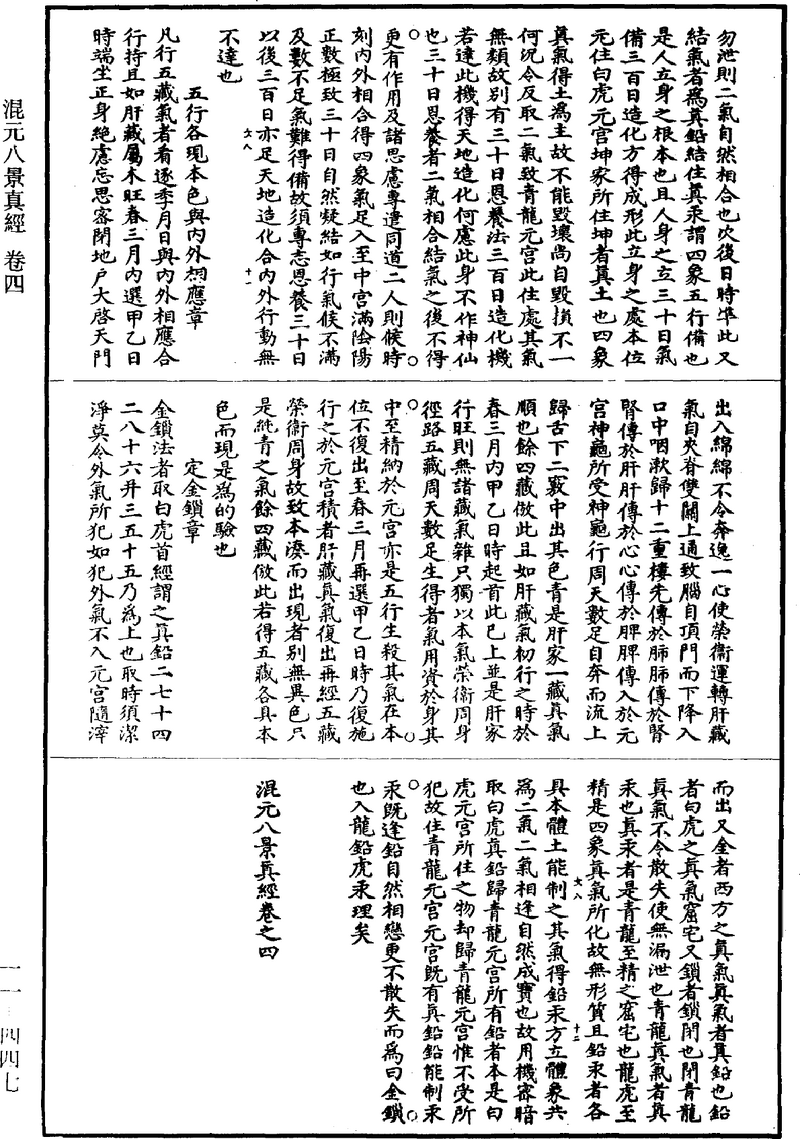 混元八景真經 卷四
勿泄則二氣自然相合也次後日時準此又
結氣者爲真鉛結住真汞謂四象五行備也
是人立身之根本也且人身之立三十日氣
備三百日造化方得成形此立身之處本位
元住白虎元宫坤家所住坤者真土也四象
真氣得土爲主故不能毀壞尚自毀損不一
何況令反取二氣致青龍元宫此住處其氣
無類故别有三十日恩養法三百日造化機
若達此機得天地造化何慮此身不作神仙
也三十日恩養者二氣相合結氣之後不得
更有作用及諸思慮專遣同道二人則候時
刻内外相合得四象氣足入至中宫滿陰陽
正數極致三十日自然凝結如行氣候不滿
及數不足氣難得備故須專志恩養三十日
以後三百日亦足天地造化合内外行動無
不達也
五行各現本色與内外相應章
凡行五藏氣者看逐季月日與内外相應合
行持且如肝藏屬木旺春三月内選甲乙日
時端坐正身絶慮忘思密閉地戶大啓天門
出入綿綿不令奔逸一心使榮衞運轉肝藏
氣自夾脊雙關上通致腦自頂門而下降入
口中咽漱歸十二重樓先傳於肺肺傳於腎
腎傳於肝肝傳於心心傳於脾脾傳入於元
宫神龜所受神龜行周天數足自奔而流上
歸舌下二竅中出其色青是肝家一藏真氣
順也餘四藏倣此且如肝藏氣初行之時於
春三月内甲乙日時起首此已上並是肝家
行旺則無諸藏氣雜只獨以本氣榮衞周身
徑路五藏周天數足生得者氣用資於身其
中至精納於元宫亦是五行生殺其氣在本
位不復出至春三月再選甲乙日時乃復施
行之於元宫積者肝藏真氣復出再經五藏
榮衞周身故致本湊而出現者别無異色只
是純青之氣餘四藏倣此若得五藏各具本
色而現是爲的驗也
定金鎖章
金鎖法者取白虎首經謂之真鉛二七十四
二八十六升三五十五乃爲上也取時須潔
淨莫令外氣所犯如犯外氣不入元宫隨滓
而出又金者西方之真氣真氣者真鉛也鉛
者白虎之真氣窟宅又鎖者鎖閉也閉青龍
真氣不令散失使無漏泄也青龍真氣者真
汞也真汞者是青龍至精之窟宅也龍虎至
精是四象真氣所化故無形質且鉛汞者各
具本體土能制之其氣得鉛汞方立體象共
爲二氣二氣相逢自然成寶也故用機密暗
取白虎真鉛歸青龍元宫所有鉛者本是白
虎元宫所住之物却歸青龍元宫惟不受所
犯故住青龍元宫元宫既有真鉛鉛能制汞
汞既逢鉛自然相戀更不散失而爲曰金鎖
也入龍鉛虎汞理矣
混元八景真經卷之四
一一·四四七